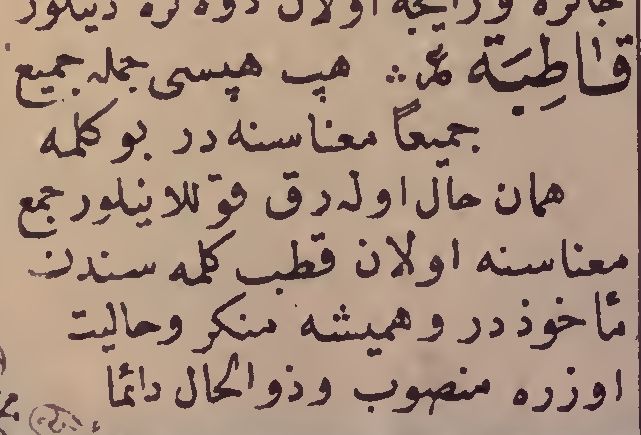 جائزه و رایجه اولان دوه لره دینلور
قَاطِبَة عر هپ هپسی جمله جمیع
جمیعاً معناسنه در بو كلمه
همان حال اوله رق قوللانیلور جمع
معناسنه اولان قطب كلمه سندن
مأخوذ در و همیشه منكر و حالیت
اوزره منصوب و ذو الحال دائما